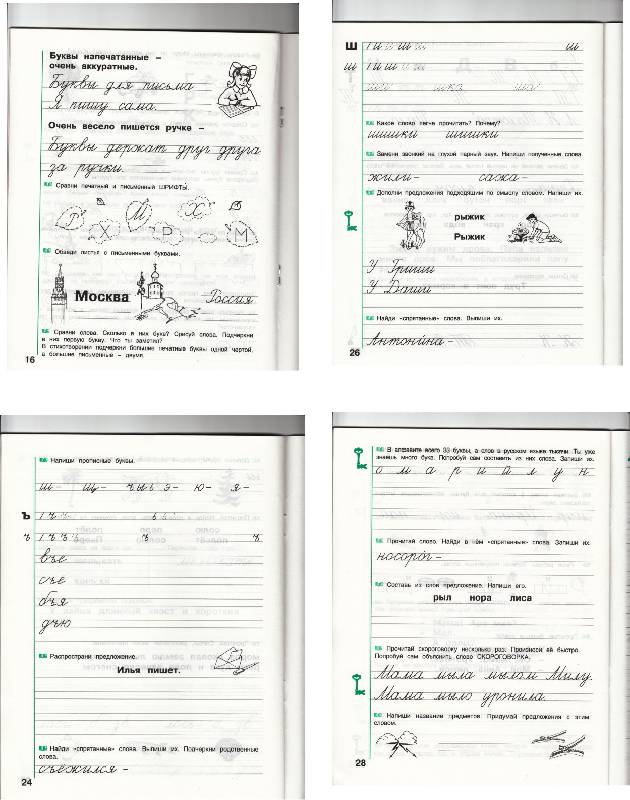 Буквы напечатанные –
очень аккуратные.
Буквы для письма
Я пишу сама.
Очень весело пишется ручке –
Буквы держат друг друга
за ручки.
Сравни печатный и письменный ШРИФТЫ.
Р Й Х
Х Р М
Обведи листья с письменными буквами.
Москва Россия
Сравни слова. Сколько в них букв? Срисуй слова. Подчеркни
в них первую букву. Что ты заметил?
В стихотворении подчеркни большие печатные буквы одной чертой,
а большие письменные – двумя.
16
Ш
ш ш
ши шка шо
Какое слово легче прочитать? Почему?
шишки шишки
Замени звонкий на глухой парный звук. Напиши полученные слова.
жили – сажа –
Дополни предложения подходящим по смыслу словом. Напиши их.
рыжик
Рыжик
У Гриши
У Даши
Найди «спрятанные» слова. Выпиши их.
Антонина –
26
Напиши прописные буквы.
ш – щ – ч ы ь э – ю – я –
Ъ
ъ ъ ъ ъ
въе
съе
бъя
дъю
Распространи предложение.
Илья пишет.
Найди «спрятанные» слова. Выпиши их. Подчеркни родственные
слова.
съёжился –
24
В алфавите всего 33 буквы, а слов в русском языке тысячи. Ты уже
знаешь много букв. Попробуй сам составить из них слова. Запиши их.
о м а р и й л у н
Прочитай слово. Найди в нём «спрятанные» слова. Запиши их.
носорог –
Составь из слов предложение. Напиши его.
рыл нора лиса
Прочитай скороговорку несколько раз. Произноси её быстро.
Попробуй сам объяснить слово СКОРОГОВОРКА.
Мама мыла мылом Милу.
Мама мыло уронила.
Напиши название предметов. Придумай предложения с этим
словом.
28